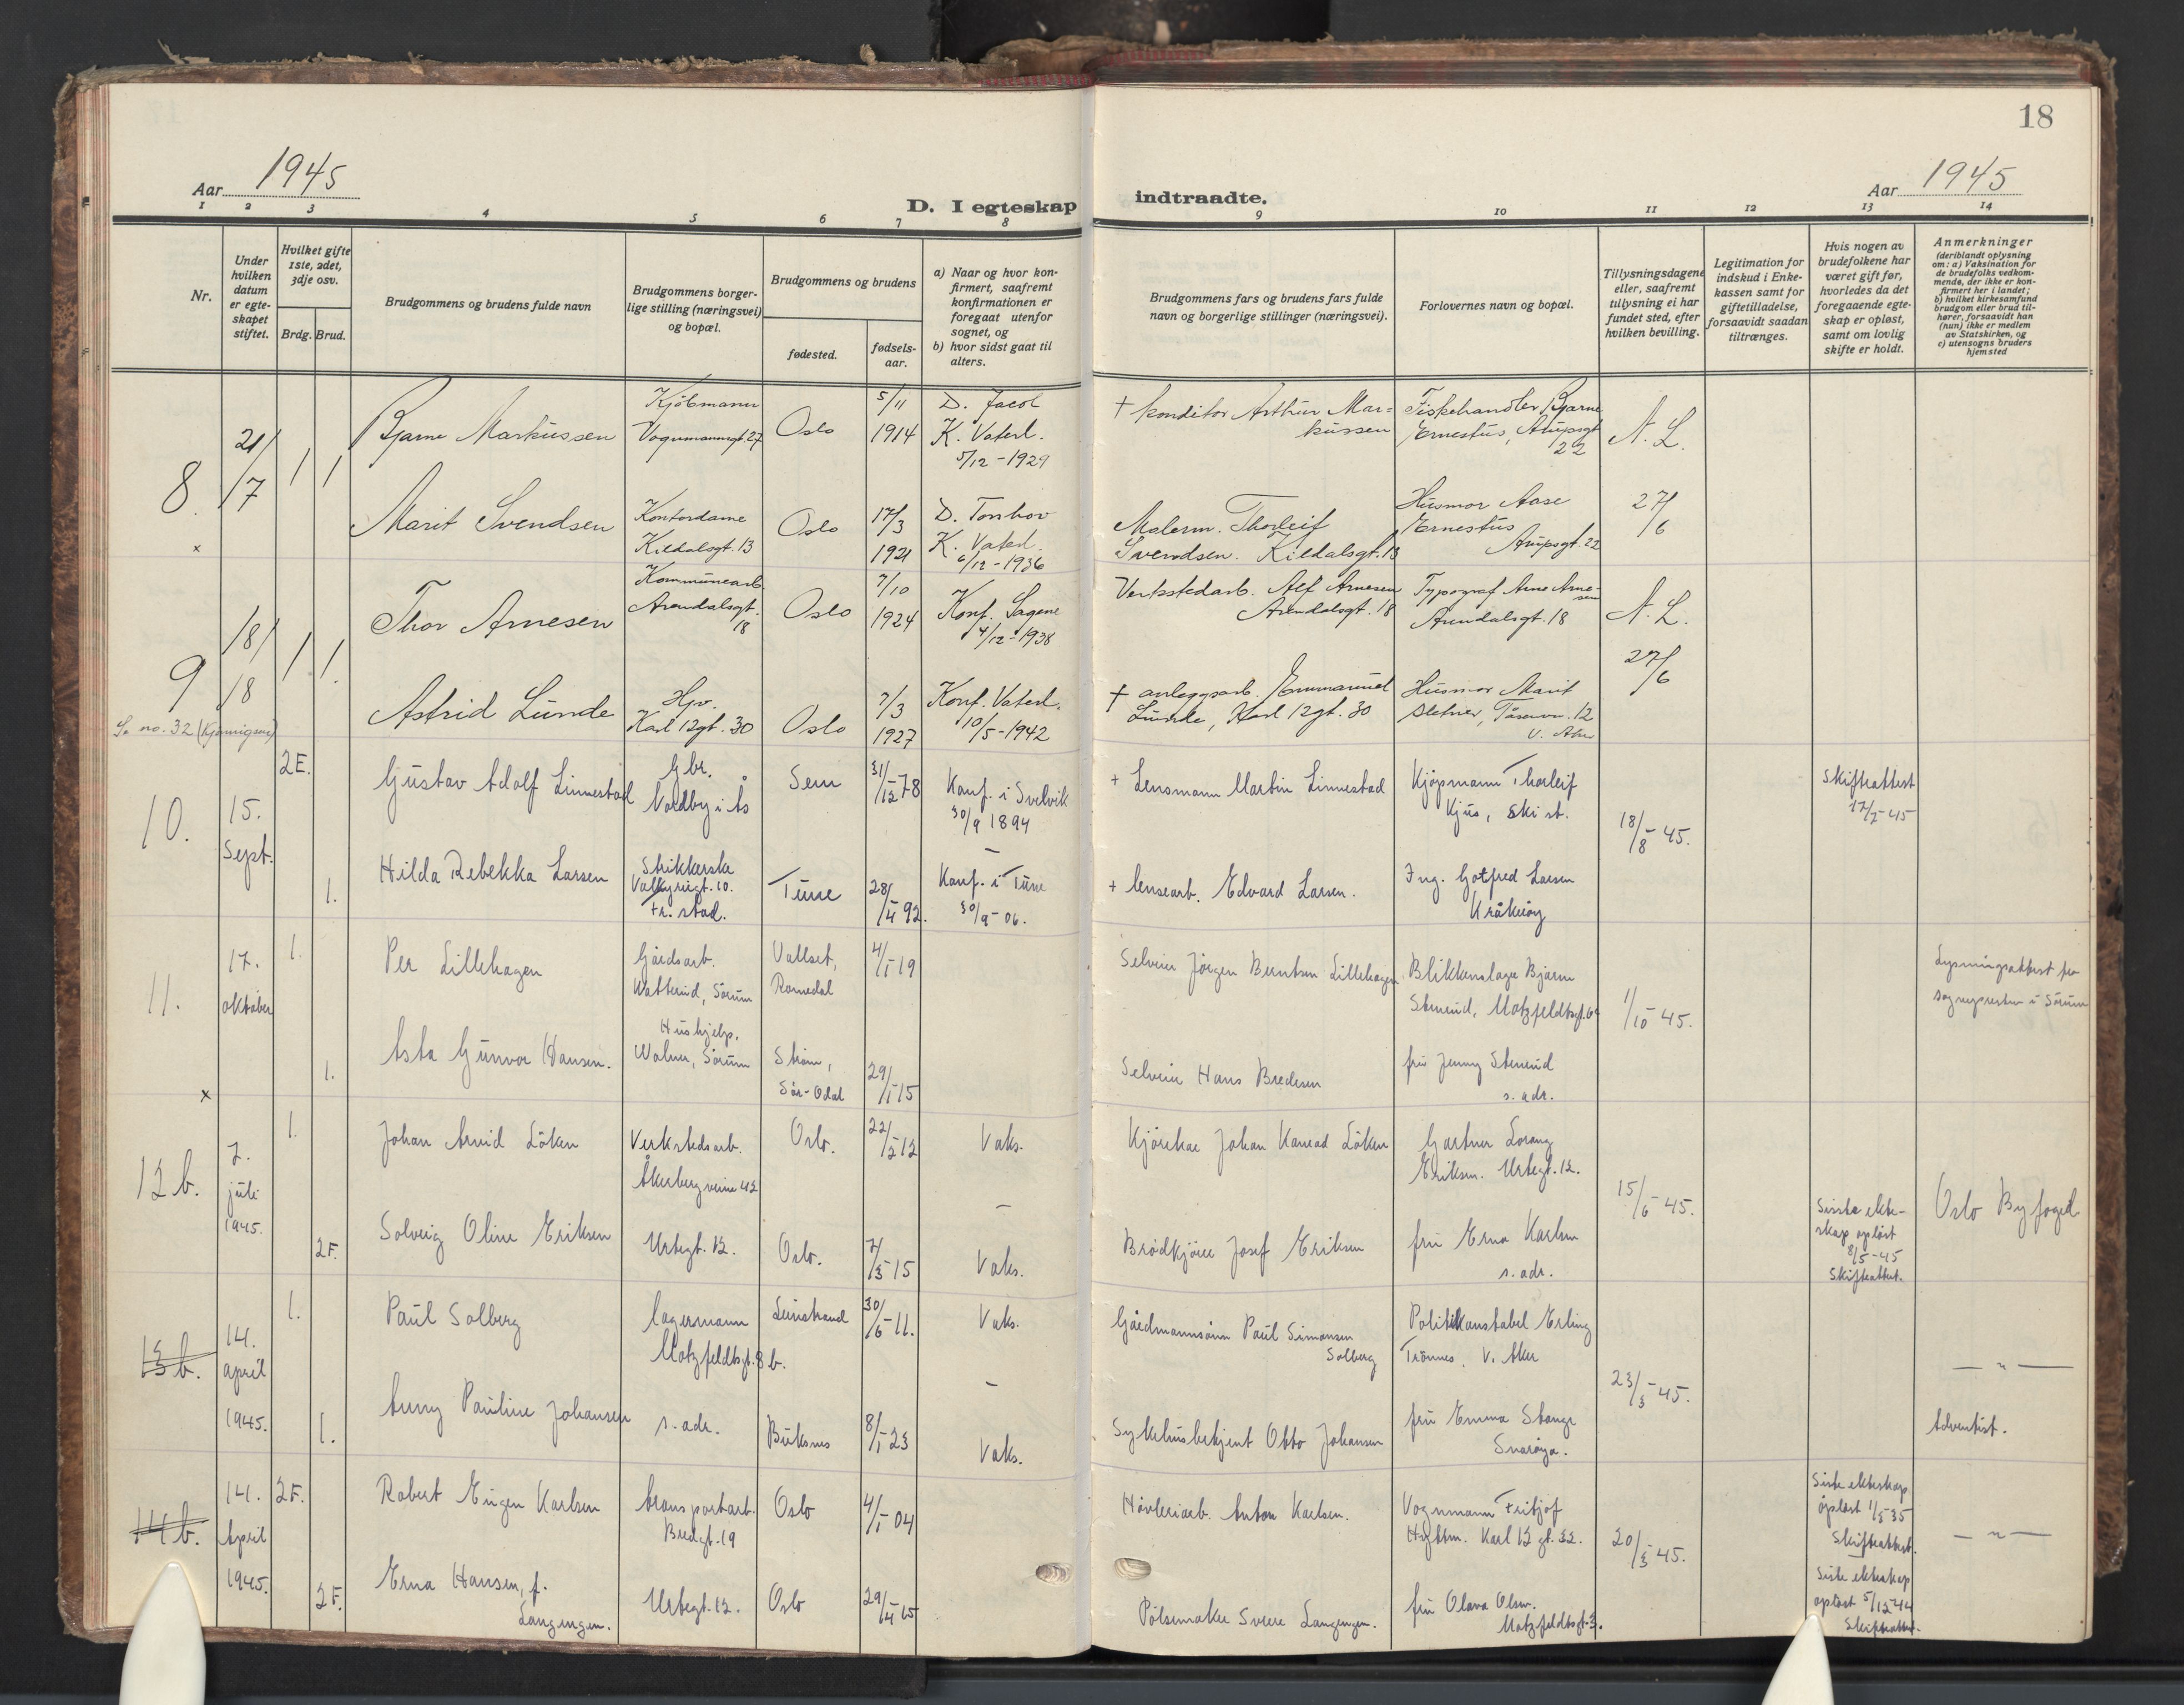 18
Aar 1945
D. I egteskap indtraadte.
Aar 1945
1 2 3 4 5 6 7 8 9 10 11 12 13 14
Nr.
Under hvilken datum er egteskapet stiftet.
Hvilket gifte 1ste, 2det, 3dje osv.
Brdg. Brud.
Brudgommens og brudens fulde navn
Brudgommens borgerlige stilling (næringsvei) og bopæl.
Brudgommens og brudens
fødested.
fødselsaar.
a) Naar og hvor konfirmert, saafremt konfirmationen er foregaat utenfor sognet, og
b) hvor sidst gaat til alters.
Brudgommens fars og brudens fars fulde navn og borgerlige stillinger (næringsvei).
Forlovernes navn og bopæl.
Tillysningsdagene eller, saafremt tillysning ei har fundet sted, efter hvilken bevilling.
Legitimation for indskud i Enkekassen samt for giftetilladelse, forsaavidt saadan tiltrænges.
Hvis nogen av brudefolkene har været gift før, hvorledes da det foregaaende egteskap er opløst, samt om lovlig skifte er holdt.
Anmerkninger (deriblandt oplysning om: a) Vaksination for de brudefolks vedkommende, der ikke er konfirmert her i landet; b) hvilket kirkesamfund brudgom eller brud tilhører, forsaavidt han (hun) ikke er medlem av Statskirken, og c) utensogns bruders hjemsted
8. 21/7 1 1
Bjarne Markussen
Kjøbmann
Vognmannsgt. 27
Oslo
5/11 1914
D. Jacob
K. Vaterl.
5/12-1929
+ konditor Arthur Markussen
Fiskehandler Bjarne Ernestus, Arupsgt 22
N. L.
27/6
Marit Svendsen
Kontordame
Kildalsgt. 13
Oslo
17/3 1921
D. Torshov
K. Vaterl.
6/12-1936
Malerm. Thorleif Svendsen. Kildalsgt. 13
Husmor Aase Ernestus
Arupsgt. 22
x
9 18/8 1 1.
Thor Arnesen
Kommunearb.
Arendalsgt. 18
Oslo
7/10 1924
Konf. Sagene
4/12-1938
Verkstedarb. Alf Arnesen
Arendalsgt. 18
Typograf Arne Arnesen
Arendalsgt. 18
N. L.
27/6
Astrid Lunde
Hjv.
Karl 12gt. 30
Oslo
7/3 1927
Konf. Vaterl.
10/5-1942
+ anleggsarb. Emmanuel Lunde, Karl 12gt. 30
Husmor Marit
Sletner, Tåsenvn. 12
V. Aker
10. 15. Sept. 2E.
Gustav Adolf Linnestad
Gbr.
Nordby i Ås
Sem
31/12-78
Konf. i Svelvik
30/9 1894
+ Lensmann Martin Linnestad
Kjøpmann Thorleif
Kjus, Ski st.
18/8-45.
Skifteattest
17/7-45
1.
Hilda Rebekka Larsen
Strikkerske
Valkyriegt. 10.
Fr. stad.
Tune
28/4-92.
Konf. i Tune
30/9-06.
+ lensearb. Edvard Larsen.
Ing. Gotfred Larsen
Kråkerøy
11. 17. oktober 1.
Per Lillehagen
Gårdsarb.
Watterud, Sørum
Vallset, Romedal
4/1-19
Selveier Jørgen Berntsen Lillehagen
Blikkenslager Bjarne
Stenerud, Motzfeldtsgt. 6
1/10-45.
Lysningsattest fra
sognepresten i Sørum
1.
Asta Gunvor Hansen.
Hushjelp.
Walner, Sørum
Strøm,
Sør-Odal
29/1-15
Selveier Hans Bredesen
fru Jenny Stenerud
s. adr.
x
12 b. 7. juli 1945. 1.
Johan Arvid Løken
Verkstedsarb.
Åkerbergveien 42
Oslo.
22/2-12
Vaks.
Kjørekar Johan Konrad Løken
Gartner Lorang
Eriksen. Urtegt. 12.
15/6-45.
Oslo Byfoged
2F.
Solveig Oline Eriksen
Urtegt. 12.
Oslo.
7/3-15
Vaks.
Brødkjører Josef Eriksen
fru Erna Karlsen
s. adr.
Siste ekteskap opløst
8/5-45
Skifteattest.
13 b. 14. april 1945. 1.
Paul Solberg
lagermann
Motzfeldtsgt. 8 b.
Leinstrand
30/6-11.
Vaks.
Gårdmannssønn Paul Simonsen Solberg
Politikonstabel Erling
Trønnes, V. Aker
23/3-45.
— " —
1.
Anny Pauline Johansen
s. adr.
Buksnes
8/1-23
Vaks.
Sykehusbetjent Otto Johansen
fru Emma Stange
Snarøya.
Adventist.
14 b. 14. April 1945. 2F.
Robert Eugen Karlsen
transportarb.
Bredgt. 19
Oslo
4/1-04
Høvleriarb. Anton Karlsen.
Vognmann Fritjof
Hytten. Karl 12 gt. 32.
20/3-45.
Siste ekteskap
opløst 1/3-35
Skifteattest.
— " —
2F.
Erna Hansen, f.
Langengen.
Urtegt. 12.
Oslo
29/4-15
Pølsemaker Sverre Langengen.
fru Olava Olsen.
Motzfeldtsgt. 3.
Siste ekteskap
opløst 5/12-44
Skifteattest.